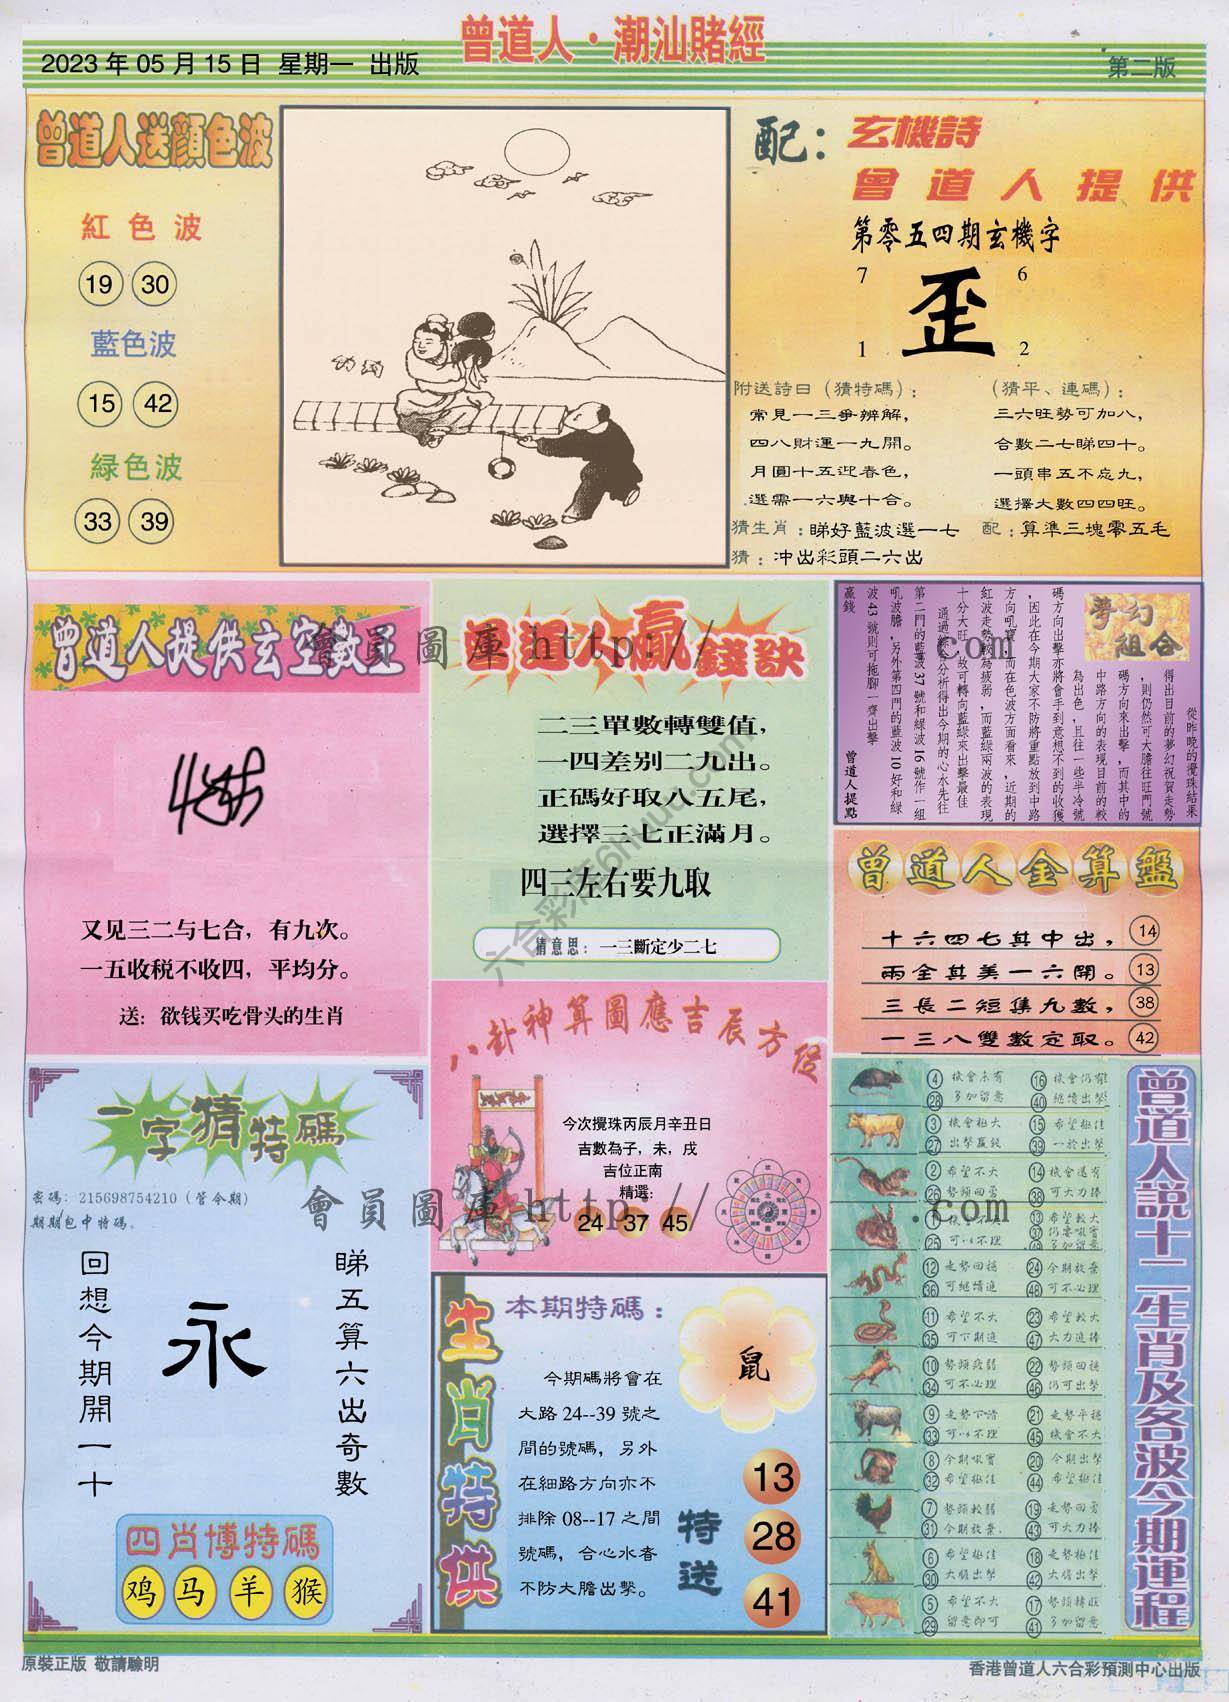 曾道人·潮汕賭經
2023 年 05 月 15 日 星期一 出版
第二版
曾道人送顏色波
紅色波
19 30
藍色波
15 42
綠色波
33 39
配：玄機詩
曾道人提供
第零五四期玄機字
7 6
歪
1 2
附送詩曰（猜特碼）：
常見一三爭辨解，
四八財運一九開。
月圓十五迎春色，
選需一六與十合。
（猜平、連碼）：
三六旺勢可加八，
合數二七睇四十。
一頭串五不忘九，
選擇大數四四旺。
猜生肖：睇好藍波選一七
配：算準三塊零五毛
猜：冲出彩頭二六出
曾道人提供玄空數王
又见三二与七合，有九次。
一五收税不收四，平均分。
送：欲钱买吃骨头的生肖
曾道人贏錢訣
二三單數轉雙值，
一四差别二九出。
正碼好取八五尾，
選擇三七正滿月。
四三左右要九取
猜意思：一三斷定少二七
夢幻組合
從昨晚的攪珠結果
得出目前的夢幻祝賀走勢
，則仍然可大膽往旺門號
碼方向來出擊，而其中的
中路方向的表現目前的較
為出色，且往一些半冷號
碼方向出擊亦將會手到意想不到的收獲
，因此在今期大家不防將重點放到中路
方向吼寶，而在色波方面看來，近期的
紅波走勢較為疲弱，而藍綠兩波的表現
十分大旺，故可轉向藍綠來出擊最佳
通過綜合分析得出今期的心水先往
第二門的藍波 37 號和綠波 16 號作一組
吼波膽，另外第四門的藍波 10 好和綠
波 43 號則可拖腳一齊出擊
贏錢
曾道人提點
曾道人金算盤
十六四七其中出， 14
兩全其美一六開。 13
三長二短集九數， 38
一三八雙數定取。 42
八卦神算圖應吉辰方位
今次攪珠丙辰月辛丑日
吉數為子，未，戌
吉位正南
精選：
24 37 45
一字猜特碼
密碼：215698754210（管今期）
期期包中特碼。
睇五算六出奇數
永
回想今期開一十
四肖博特碼
鸡 马 羊 猴
生肖特供
本期特碼：
鼠
今期碼將會在
大路 24--39 號之
間的號碼，另外
在細路方向亦不
排除 08--17 之間
號碼，合心水者
不防大膽出擊。
特送
13
28
41
曾道人説十二生肖及各波今期運程
4 機會未有 16 機會仍有
28 多加留意 40 繼續出擊
3 機會極大 15 希望極佳
27 出擊贏錢 39 一於出擊
2 希望不大 14 機會還有
26 勢頭回勇 38 可大力捧
1 機會不大 13 希望較大
25 可以不理 37 仍要吼實
49 多加留意
12 走勢回穩 24 今期放棄
36 可繼續追 48 可不必理
11 希望不大 23 希望較大
35 可下期追 47 大力追捧
10 勢頭疲弱 22 勢頭回穩
34 可不必理 46 仍可出擊
9 走勢下滑 21 走勢平穩
33 可以不理 45 機會不大
8 今期吼實 20 今期出擊
32 希望極佳 44 希望極佳
7 勢頭較弱 19 走勢回勇
31 今期放棄 43 可大力捧
6 希望極佳 18 走勢極佳
30 大膽出擊 42 大膽出擊
5 希望不大 17 勢頭轉旺
29 留意即可 41 多加留意
會員圖庫 http:// .com
會員圖庫 http:// .com
六合彩库6huu.com
原裝正版 敬請驗明
香港曾道人六合彩預測中心出版